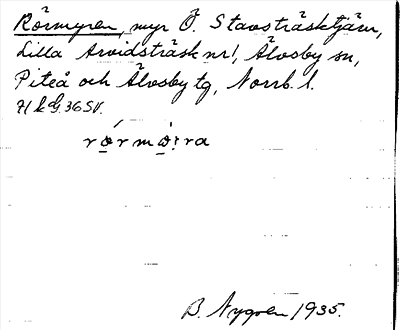 Rörmyren, myr Ö. Stavsträsktjärn,
Lilla Arvidsträsk nr 1, Älvsby sn,
Piteå och Älvsby tg, Norrb. l.
71 k G 36 SV.
B. Nygren 1935.